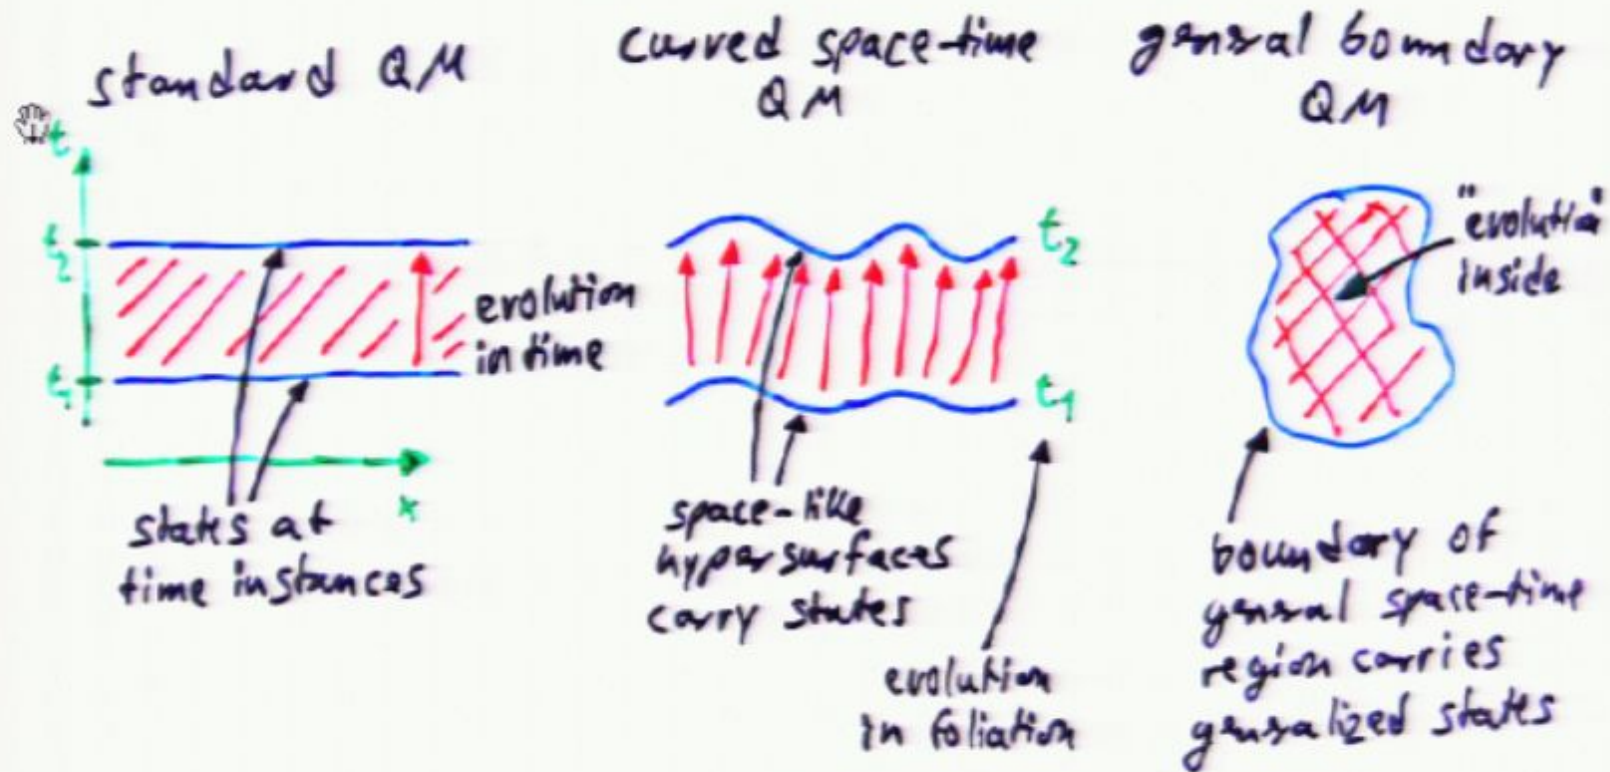 standard QM
t
t2
t1
x
evolution
in time
states at
time instances
curved space-time
QM
t2
t1
space-like
hypersurfaces
carry states
evolution
in foliation
general boundary
QM
"evolution"
inside
boundary of
general space-time
region carries
generalized states